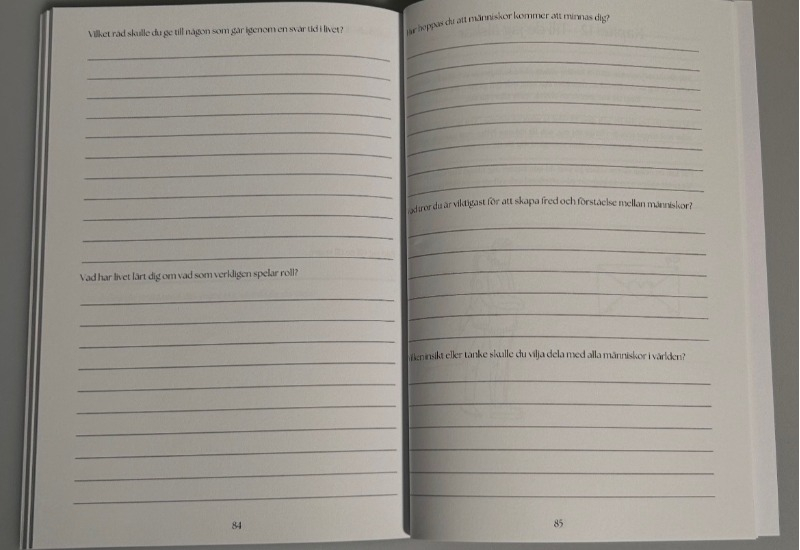 Vilket råd skulle du ge till någon som går igenom en svår tid i livet?
Vad har livet lärt dig om vad som verkligen spelar roll?
84
hoppas du att människor kommer att minnas dig?
tror du är viktigast för att skapa fred och förståelse mellan människor?
insikt eller tanke skulle du vilja dela med alla människor i världen?
85